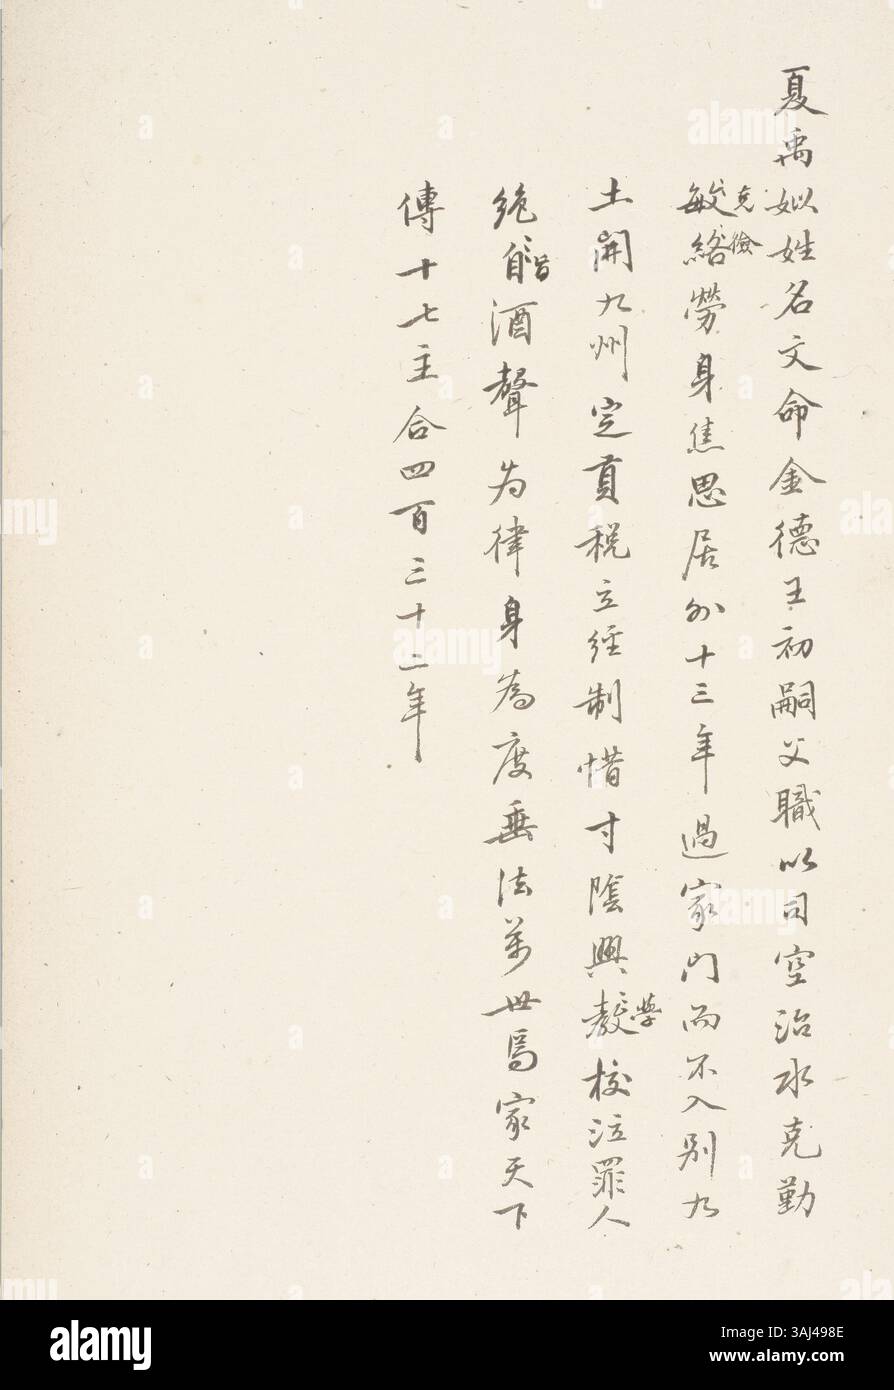 夏禹姒姓名文命金德王初嗣父職以司空治水克勤
敏給勞身焦思居外十三年過家門而不入別九
克儉
土開九州定貢税立經制惜寸陰興教校泣罪人
學
絶旨酒聲為律身為度垂法萬世焉家天下
傳十七主合四百三十二年
alamy
Image ID: 3AJ498E
www.alamy.com